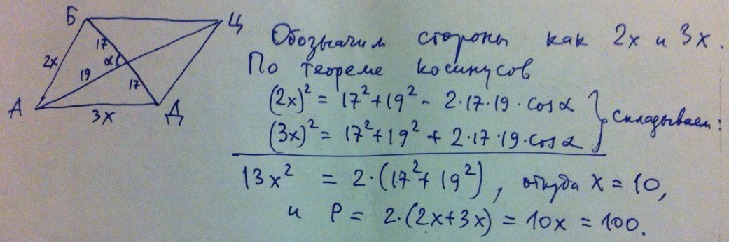 Б
Ц
2x
17
α
19
17
А
3x
Д
Обозначим стороны как 2x и 3x.
По теореме косинусов
(2x)² = 17² + 19² - 2·17·19·cosα
(3x)² = 17² + 19² + 2·17·19·cosα
складываем:
13x² = 2·(17² + 19²), откуда x = 10,
и P = 2·(2x+3x) = 10x = 100.